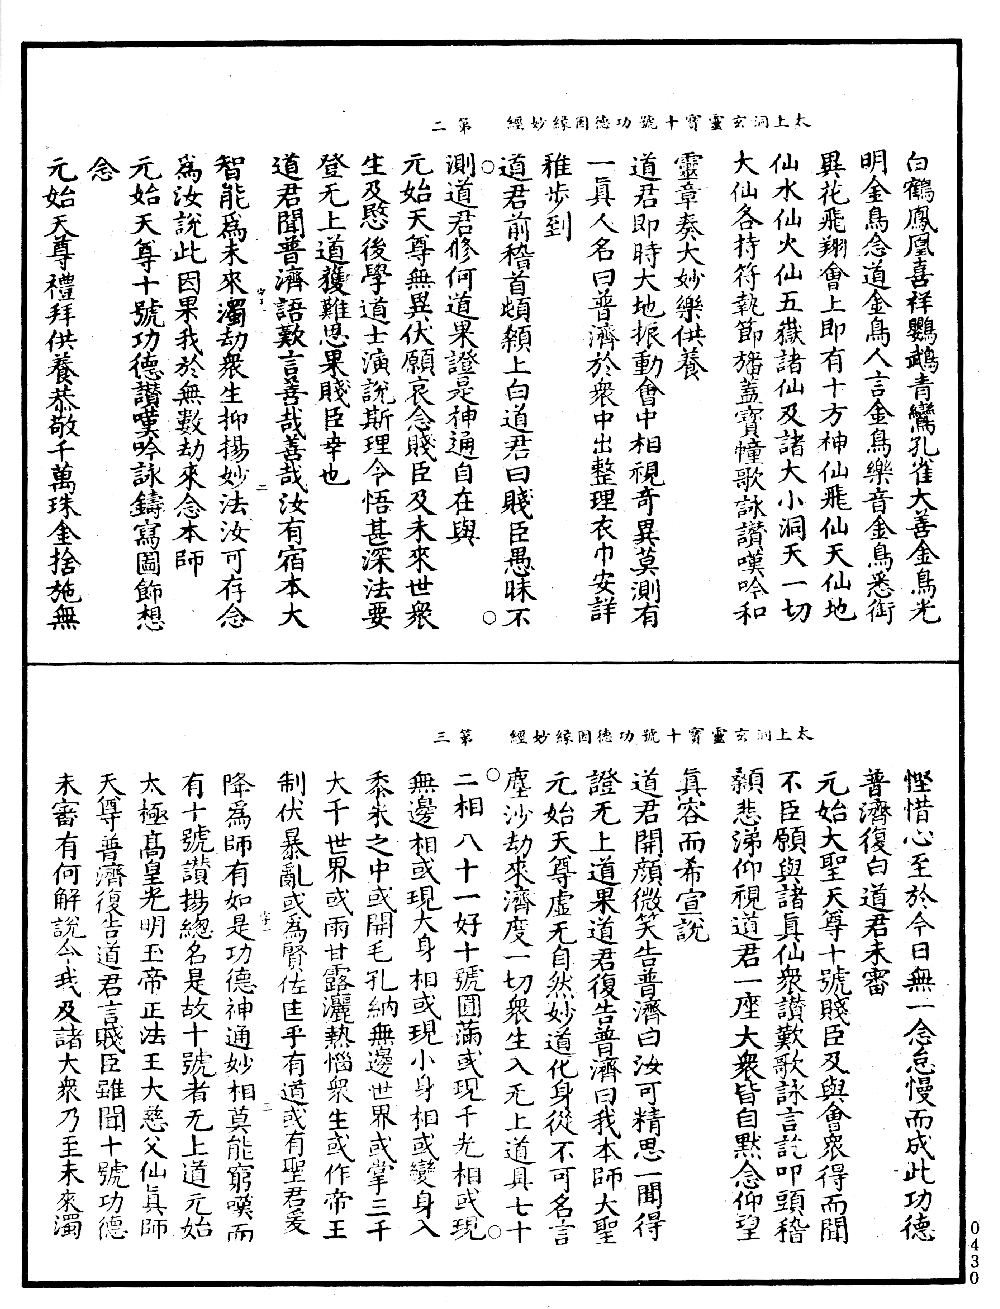 太上洞玄靈寳十號功德因緣妙經　第二
白鶴鳳凰喜祥鸚鵡青鸞孔雀大善金鳥光
明金鳥念道金鳥人言金鳥樂音金鳥悉銜
異花飛翔會上即有十方神仙飛仙天仙地
仙水仙火仙五嶽諸仙及諸大小洞天一切
大仙各持符執節旛蓋寳幢歌詠讃嘆吟和
靈章奏大妙樂供養
道君即時大地振動會中相視奇異莫測有
一眞人名曰普濟於衆中出整理衣巾安詳
稚步到
道君前稽首頫顙上白道君曰賤臣愚昧不
測道君修何道果證是神通自在與
元始天尊無異伏願哀念賤臣及未來世衆
生及愍後學道士演說斯理令悟甚深法要
登无上道獲難思果賤臣幸也
道君聞普濟語歎言善哉善哉汝有宿本大
智能爲未來濁劫衆生抑揚妙法汝可存念
爲汝說此因果我於無數劫來念本師
元始天尊十號功德讃嘆吟詠鑄寫圖飾想
念
元始天尊禮拜供養恭敬千萬珠金捨施無
太上洞玄靈寳十號功德因緣妙經　第三
慳惜心至於今日無一念怠慢而成此功德
普濟復白道君未審
元始大聖天尊十號賤臣及與會衆得而聞
不臣願與諸眞仙衆讃歎歌詠言訖叩頭稽
顙悲涕仰視道君一座大衆皆自黙念仰望
眞容而希宣說
道君開顔微笑告普濟曰汝可精思一聞得
證无上道果道君復告普濟曰我本師大聖
元始天尊虛无自然妙道化身從不可名言
塵沙劫來濟度一切衆生入无上道具七十
二相八十一好十號圓滿或現千光相或現
無邊相或現大身相或現小身相或變身入
黍米之中或開毛孔納無邊世界或掌三千
大千世界或雨甘露灑熱惱衆生或作帝王
制伏暴亂或爲賢佐匡乎有道或有聖君爰
降爲師有如是功德神通妙相莫能窮嘆而
有十號讃揚總名是故十號者无上道元始
太極髙皇光明玉帝正法王大慈父仙眞師
天尊普濟復告道君言賤臣雖聞十號功德
未審有何解說令我及諸大衆乃至未來濁
0430